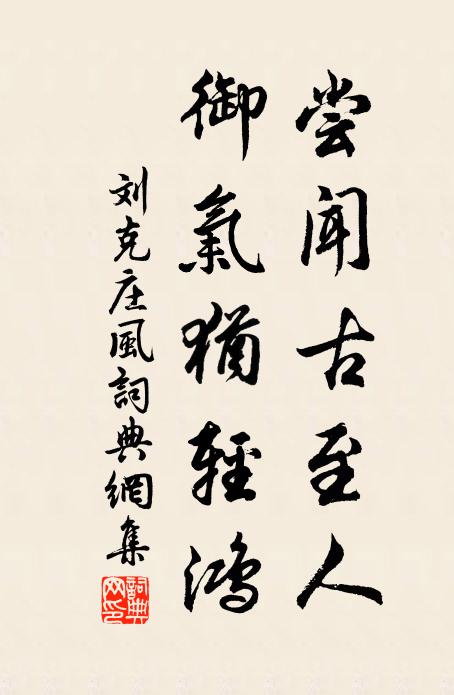 尝闻古至人
御氣猶輕鴻
刘克庄風詞典網集
詞典网印